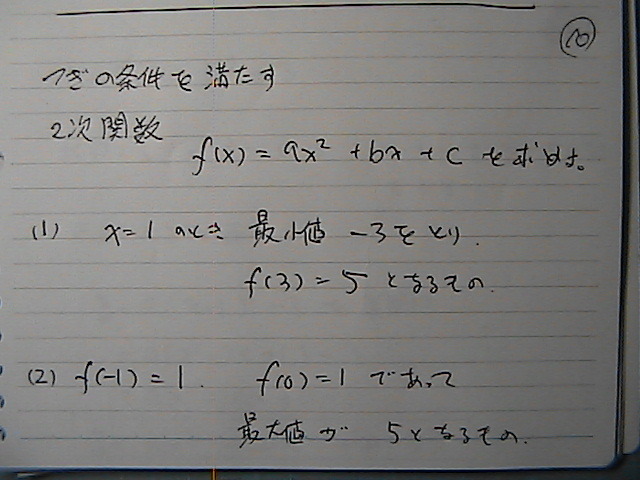 ⑩
つぎの条件を満たす
2次関数
f(x) = ax² + bx + c を求めよ。
(1) x=1 のとき 最小値 -3をとり.
f(3) = 5 となるもの.
(2) f(-1) = 1. f(0) = 1 であって
最大値が 5となるもの.